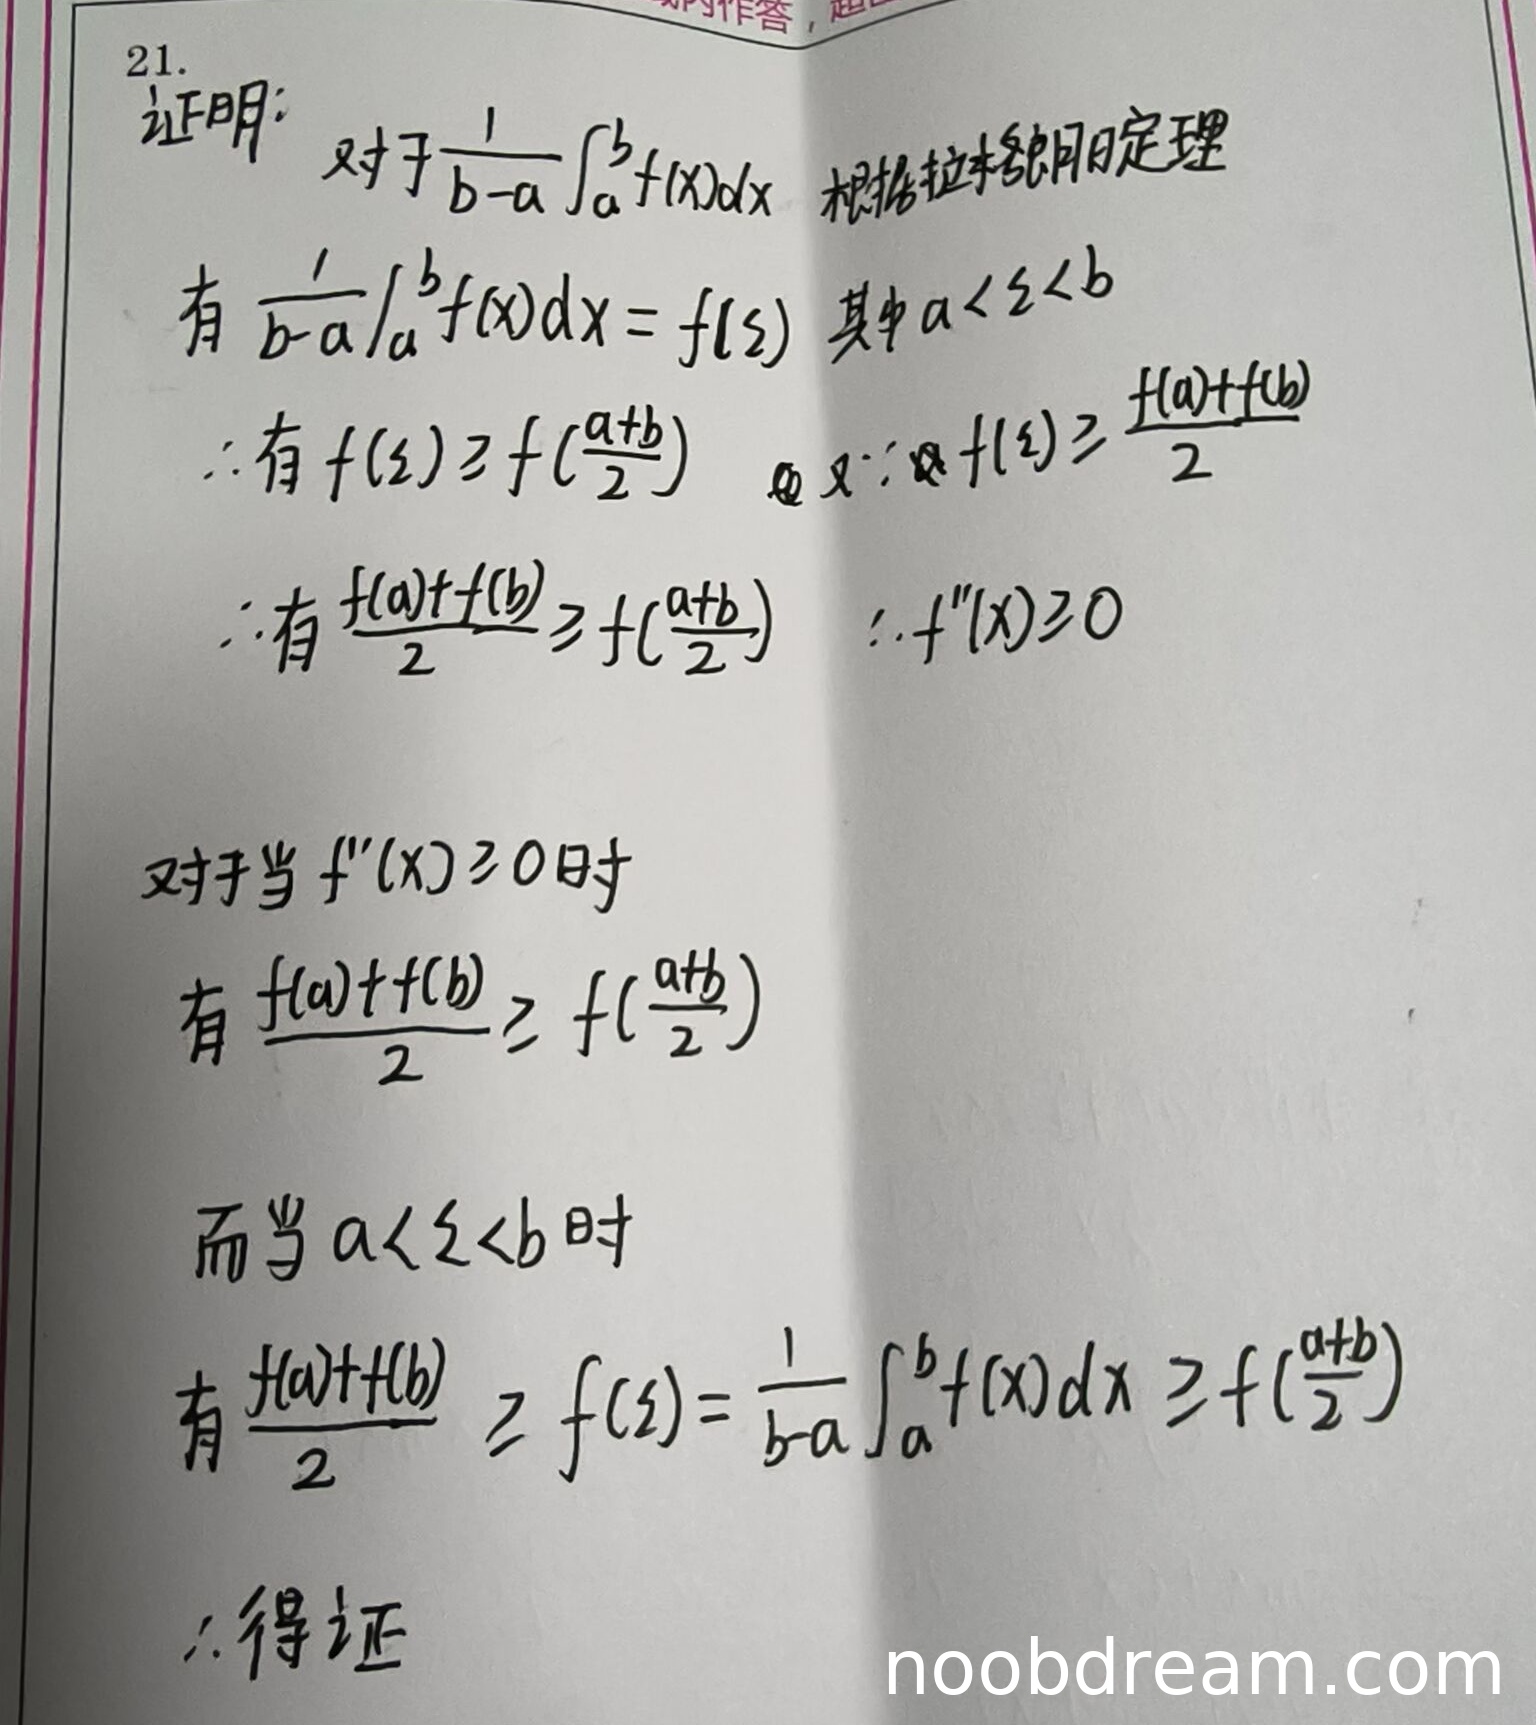 内作答，超
21.
证明：
对于 \frac{1}{b-a}∫_a^b f(x)dx 根据拉格朗日定理
有 \frac{1}{b-a}∫_a^b f(x)dx = f(ξ) 其中 a<ξ<b
∴有 f(ξ) ≥ f(\frac{a+b}{2}) 又∵ f(ξ) ≥ \frac{f(a)+f(b)}{2}
∴有 \frac{f(a)+f(b)}{2} ≥ f(\frac{a+b}{2}) ∴ f''(x) ≥ 0
对于当 f''(x) ≥ 0 时
有 \frac{f(a)+f(b)}{2} ≥ f(\frac{a+b}{2})
而当 a<ξ<b 时
有 \frac{f(a)+f(b)}{2} ≥ f(ξ) = \frac{1}{b-a}∫_a^b f(x)dx ≥ f(\frac{a+b}{2})
∴得证
noobdream.com